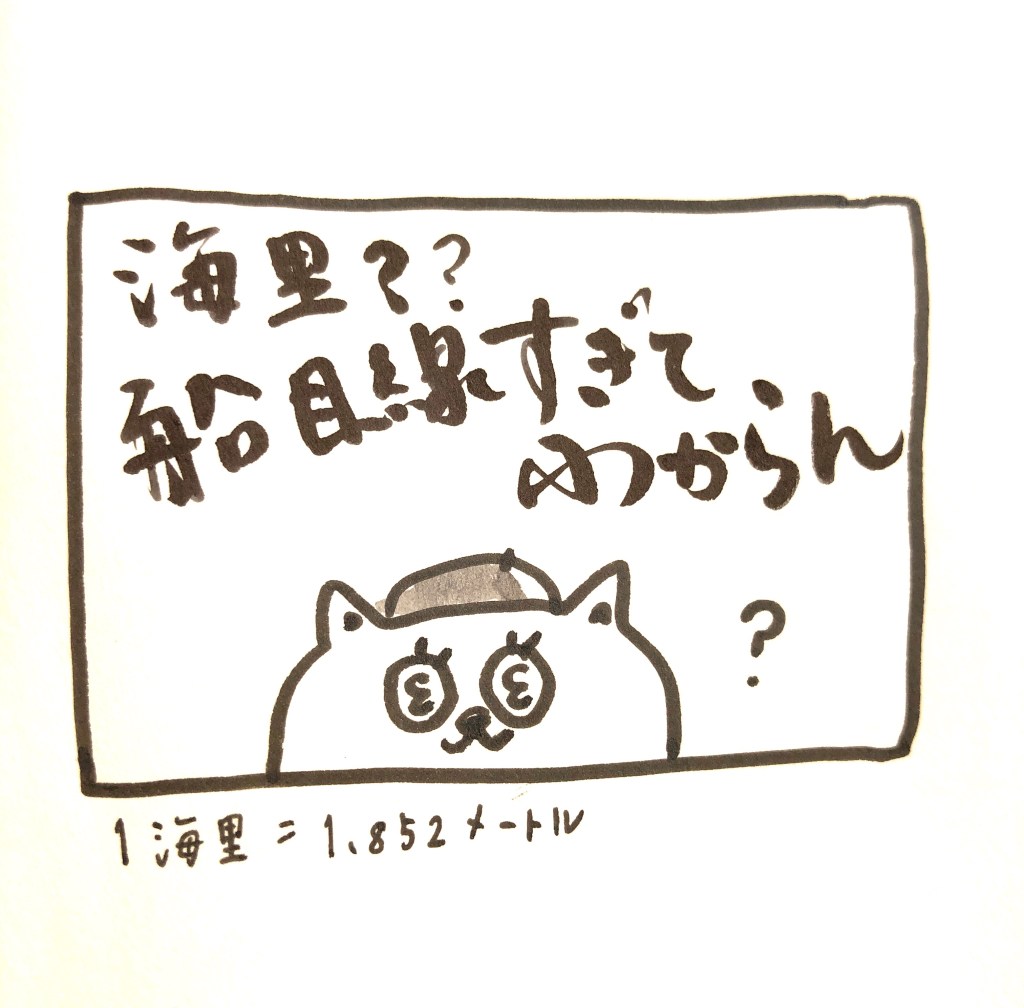 海里??
船目線すぎて
わからん
?
1海里=1.852メートル